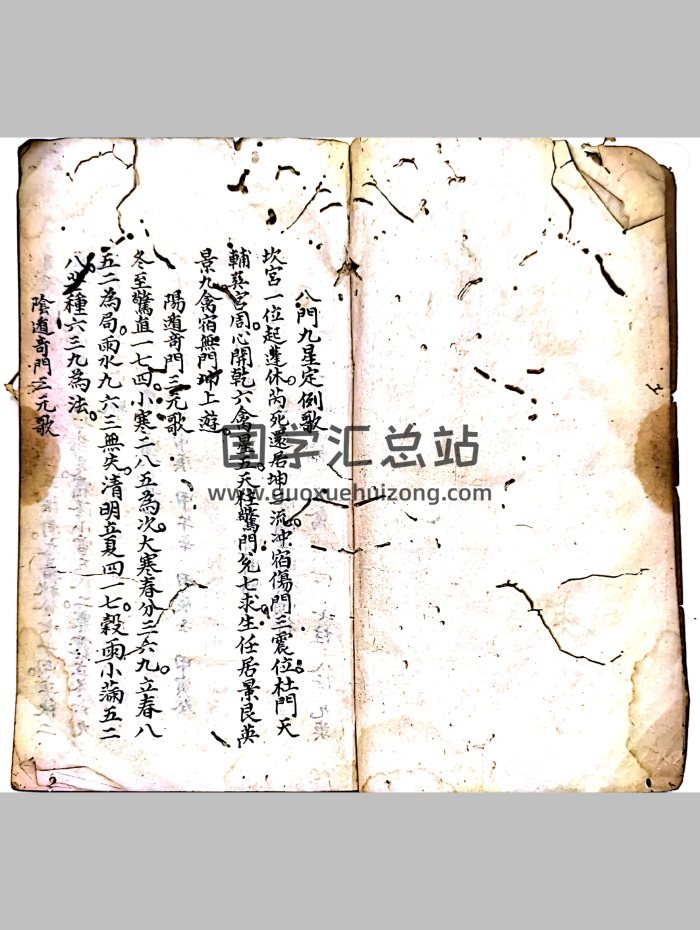 八門九星定例歌
坎宮一位起蓬休芮死還居坤二流冲宿傷門三震位杜門天
輔巽宮周心開乾六禽星五天柱驚門兌七求生任居景艮英
景九禽宿無門坤上遊
陽遁奇門三元歌
冬至驚直一七四小寒二八五為次大寒春分三六九立春八
五二為局雨水九六三無失清明立夏四一七穀雨小滿五二
八種六三九為法
陰遁奇門三元歌
国学汇总站
www.guoxuehuizong.com